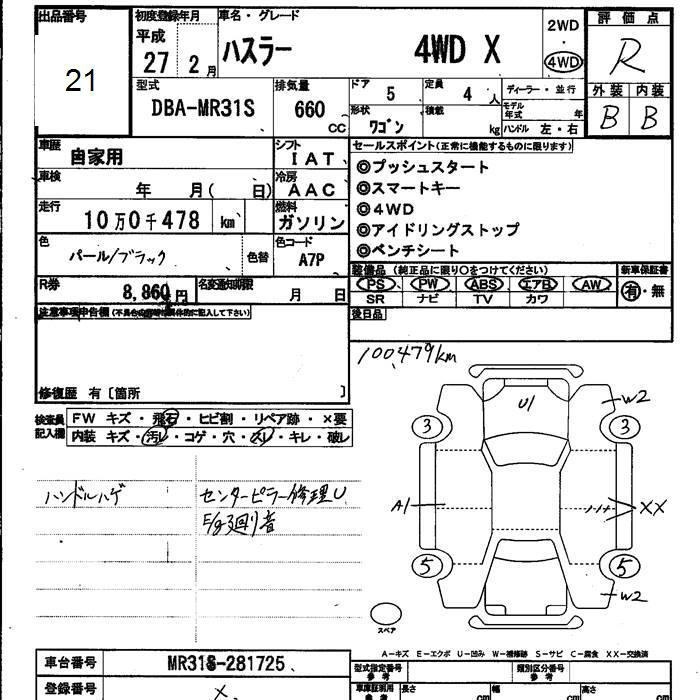 出品番号
21
初度登録年月
平成
27 2 月
車名・グレード
ハスラー 4WD X
2WD
・
4WD
評価点
R
外装 内装
B B
型式
DBA-MR31S
排気量
660 CC
ドア
5
定員
4 人
形状
ワゴン
積載
kg
ディーラー・並行
モデル年式 年
ハンドル 左・右
車歴
自家用
シフト
IAT
車検
年 月( 日)
冷房
AAC
走行
10万0千478 km
燃料
ガソリン
色
パール/ブラック
色替
色コード
A7P
R券
8,860円
名変通知期限
月 日
セールスポイント(正常に機能するものに限ります)
◎プッシュスタート
◎スマートキー
◎4WD
◎アイドリングストップ
◎ベンチシート
装備品 (純正品に限り○をつけてください)
PS PW ABS エアB AW
SR ナビ TV カワ
新車保証書
有・無
後日品
注意事項申告欄(不具合箇所等具体的に記入して下さい)
修復歴 有〔箇所 〕
100,479km
検査員記入欄
FW キズ・飛石・ヒビ割・リペア跡・×要
内装 キズ・汚レ・コゲ・穴・スレ・キレ・破レ
ハンドルハゲ
センターピラー修理U
E/g廻り音
U1
W2
3 3
A1
XX
5 5
W2
スペア
A―キズ E―エクボ U―凹み W―補修跡 S―サビ C―腐食 XX―交換済
車台番号
MR31S-281725
登録番号
×
型式指定番号
参考
類別区分番号
参考
車庫証明用
参考
長さ cm
幅 cm
高さ cm